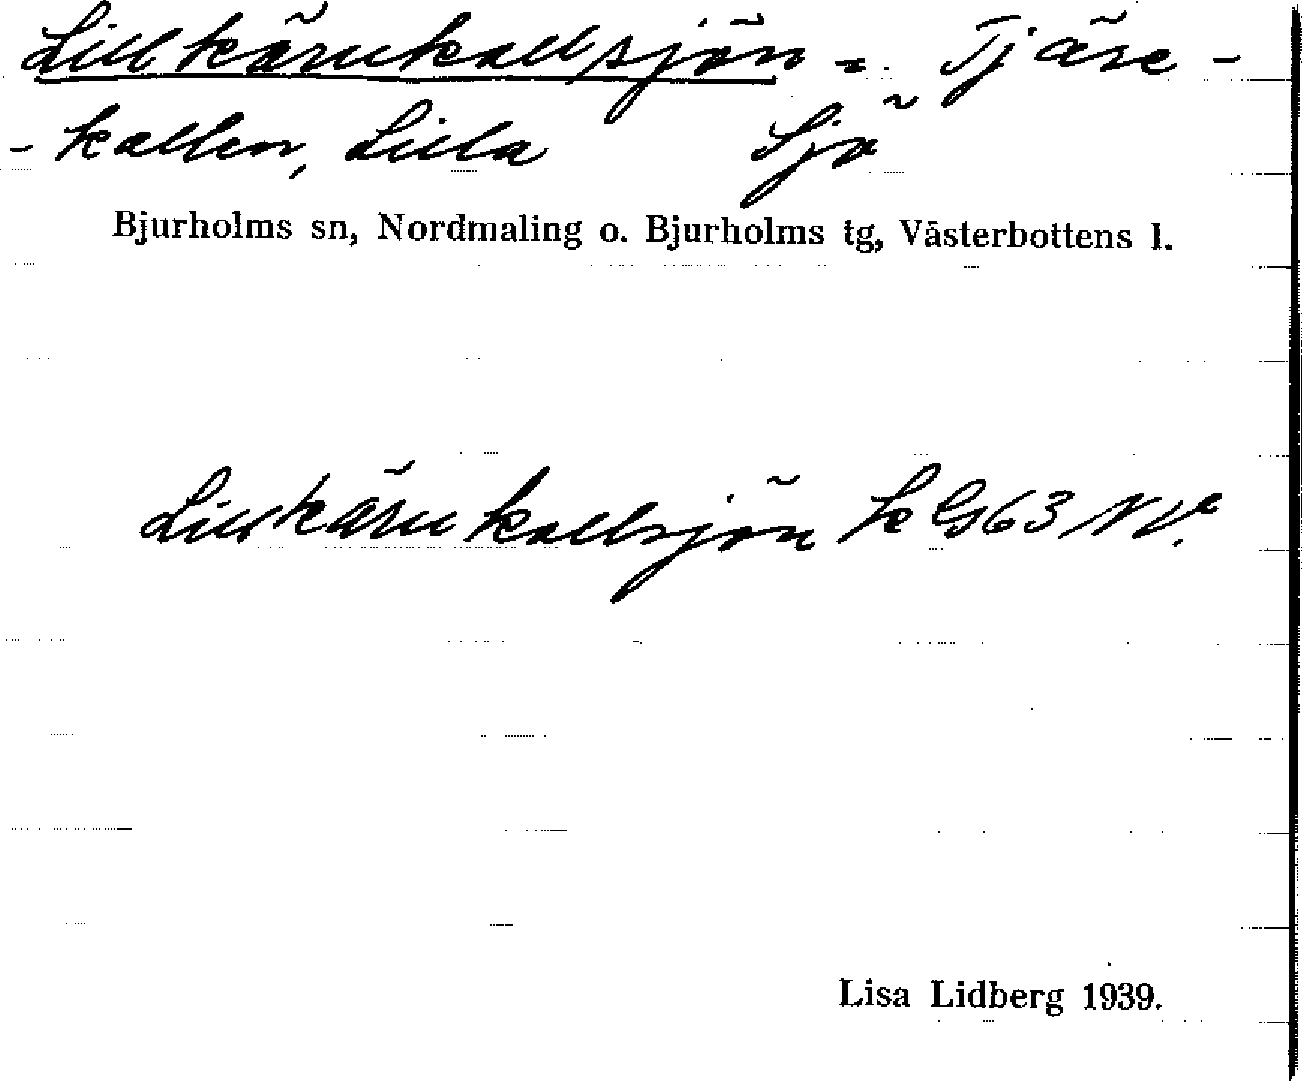 Lillkärukallsjön = Tjäre-
-kallen, Lilla Sjö
Bjurholms sn, Nordmaling o. Bjurholms tg, Västerbottens l.
Lillkärukallsjön 63 NV.
Lisa Lidberg 1939.